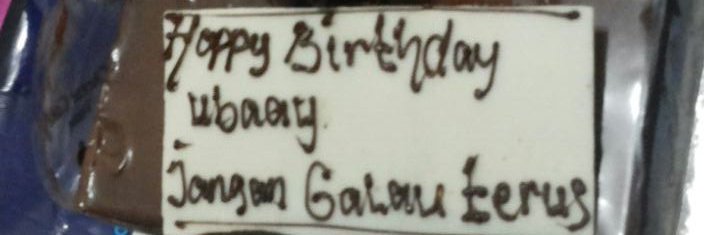 Happy Birthday
ubaay
Jangan Galau terus